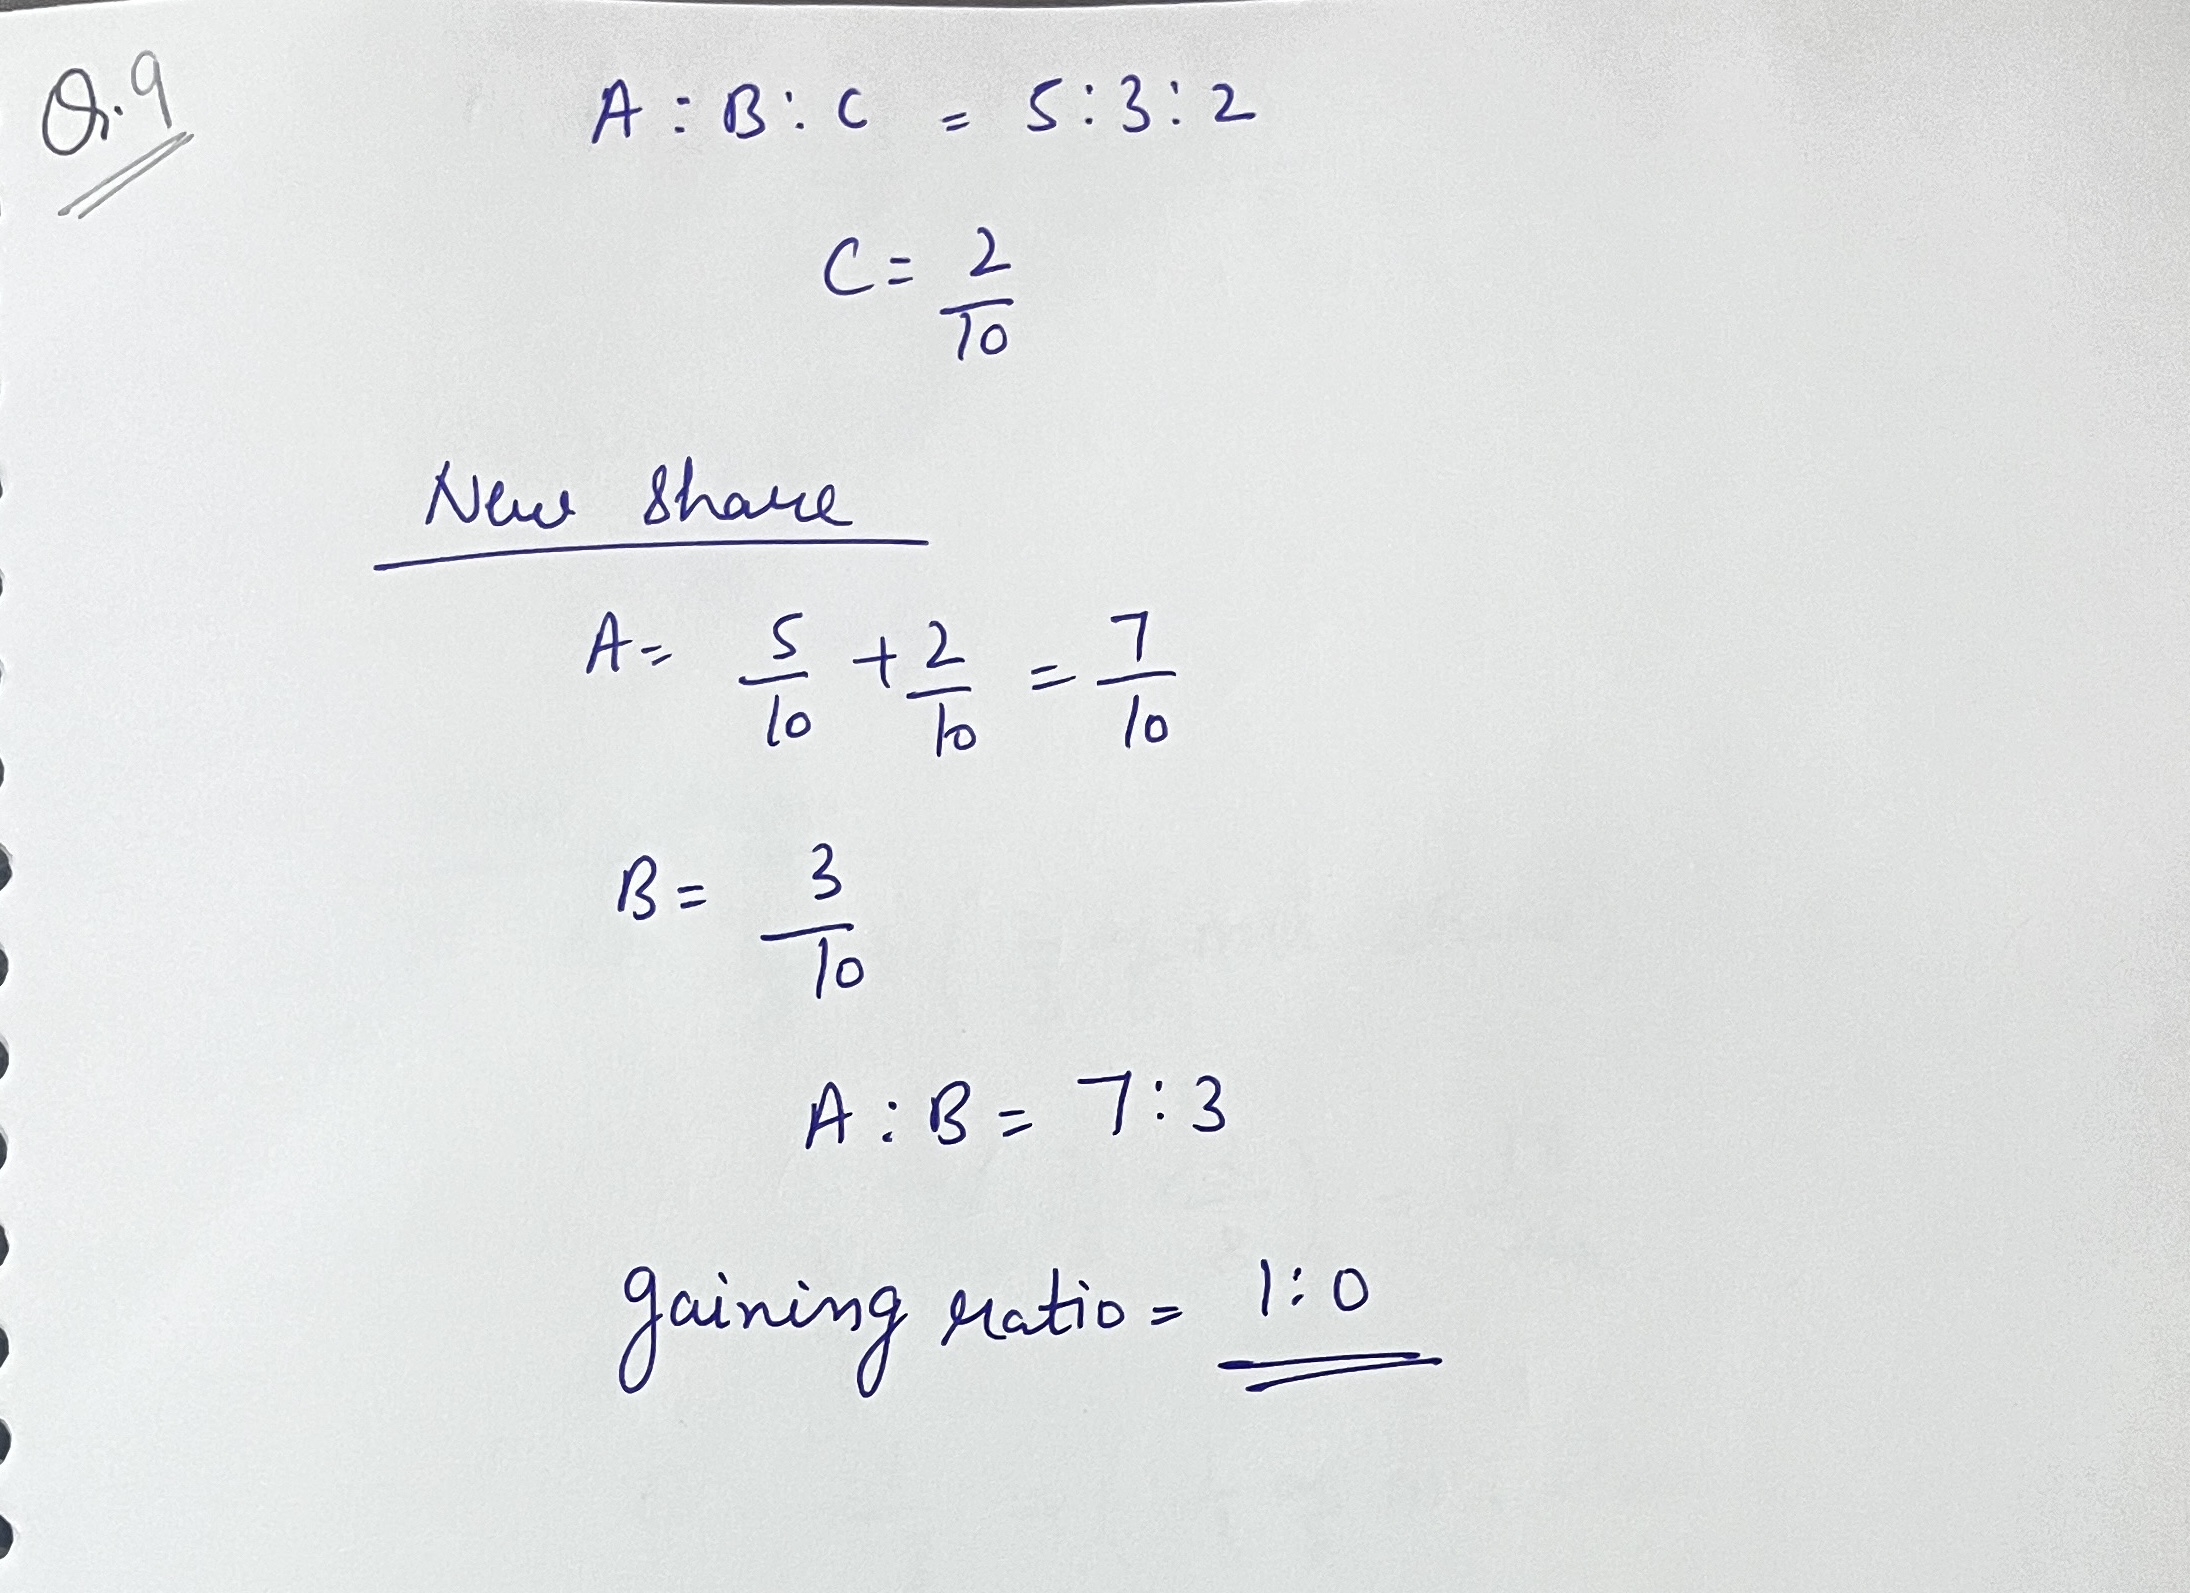 Q.9
A : B : C = 5 : 3 : 2
C = 2/10
New Share
A = 5/10 + 2/10 = 7/10
B = 3/10
A : B = 7 : 3
gaining ratio = 1 : 0